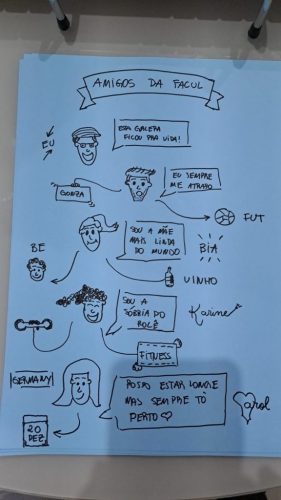 AMIGOS DA FACUL
EU
ESSA GALERA
FICOU PRA VIDA!
GONZA
EU SEMPRE
ME ATRASO
FUT
SOU A MÃE
MAIS LINDA
DO MUNDO
BIA
BE
VINHO
SOU A
SÓBRIA DO
ROLÊ
Karine
FITNESS
GERMANY
POSSO ESTAR LONGE
MAS SEMPRE TÔ
PERTO
Carol
20
DEZ